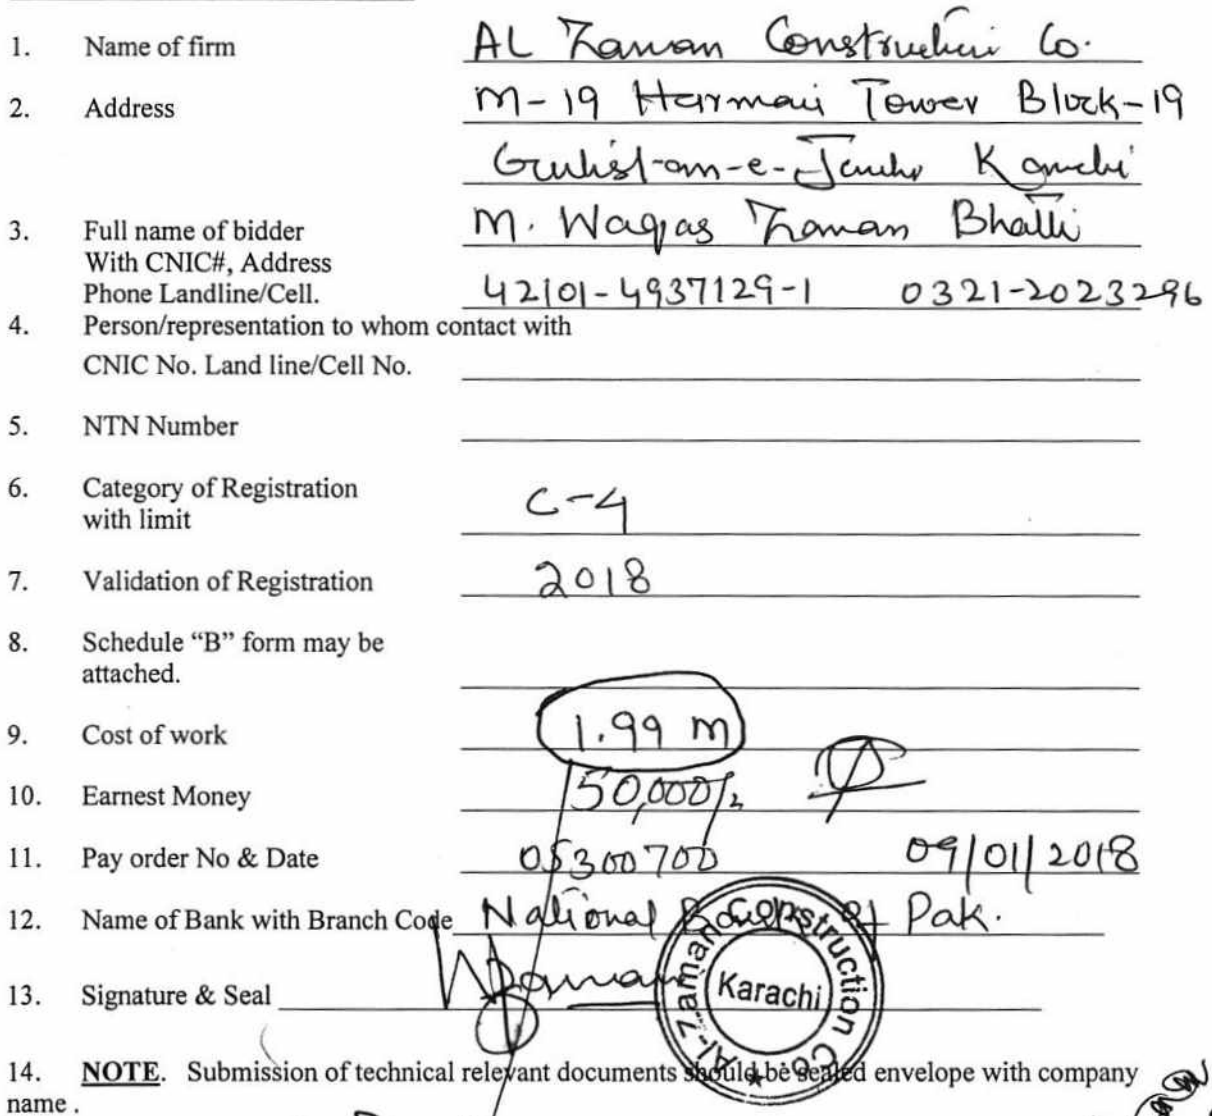 1. Name of firm AL Zaman Construction Co.
2. Address M-19 Harmain Tower Block-19
Gulistan-e-Jauhr Karachi
3. Full name of bidder M. Waqas Zaman Bhatti
With CNIC#, Address
Phone Landline/Cell. 42101-4937129-1 0321-2023296
4. Person/representation to whom contact with
CNIC No. Land line/Cell No.
5. NTN Number
6. Category of Registration C-4
with limit
7. Validation of Registration 2018
8. Schedule “B” form may be
attached.
9. Cost of work 1.99 m
10. Earnest Money 50,000/-
11. Pay order No & Date 05300700 09/01/2018
12. Name of Bank with Branch Code National Bank of Pak.
13. Signature & Seal Zaman
Al-Zaman Construction Co.
Karachi
14. NOTE. Submission of technical relevant documents should be sealed envelope with company
name .